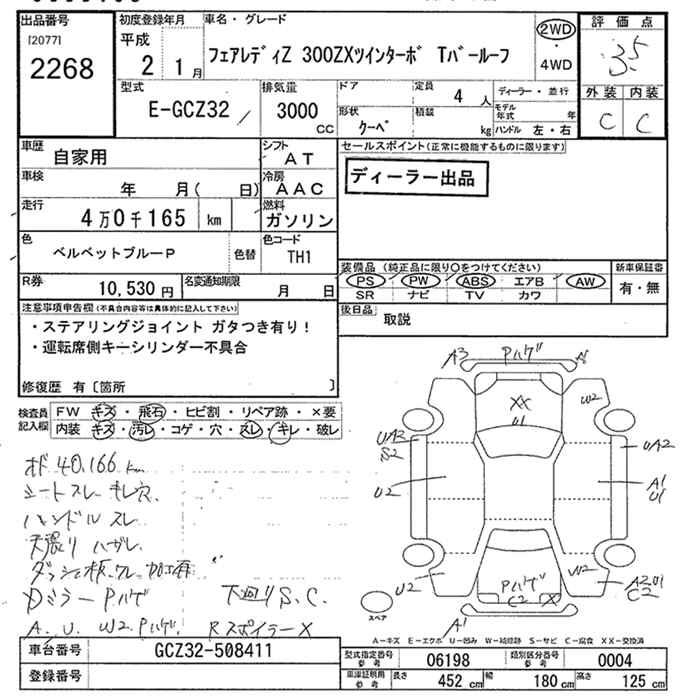 出品番号
[2077]
2268
初度登録年月
平成
2 1月
車名・グレード
フェアレディZ 300ZXツインターボ Tバールーフ
2WD
・
4WD
評価点
3.5
外装 内装
C C
型式
E-GCZ32
排気量
3000
CC
ドア
定員
4 人
形状
クーペ
積装
kg
ディーラー・並行
モデル年式 年
ハンドル 左・右
車歴
自家用
シフト
AT
車検
年 月( 日)
冷房
AAC
走行
4万0千165 km
燃料
ガソリン
色
ベルベットブルーP
色替
色コード
TH1
R券
10,530円
名変通知期限
月 日
セールスポイント(正常に機能するものに限ります)
ディーラー出品
装備品(純正品に限り○をつけてください)
PS PW ABS エアB AW
SR ナビ TV カワ
新車保証書
有・無
後日品
取説
注意事項申告欄(不具合内容等は具体的に記入して下さい)
・ステアリングジョイント ガタつき有り!
・運転席側キーシリンダー不具合
修復歴 有〔箇所 〕
検査員記入欄
FW キズ・飛石・ヒビ割・リペア跡・×要
内装 キズ・汚レ・コゲ・穴・スレ・キレ・破レ
メーター 40,166 km
シートスレ キレ 穴
ハンドルスレ
天張り ハガレ
Dミラー Pハゲ
下廻りS.C.
A. U. W2. Pハゲ Rスポイラー X
A3 Pハゲ A
XX
U1
W2
UA3
S2
UA2
U2
A1
U1
U2
Pハゲ
C2 X
W2
A2U1
C2
A1
スペア
A-キズ E-エクボ U-凹み W-補修跡 S-サビ C-腐食 XX-交換済
車台番号
GCZ32-508411
登録番号
型式指定番号
参考
06198
類別区分番号
参考
0004
車庫証明用
参考
長さ 452 cm 幅 180 cm 高さ 125 cm